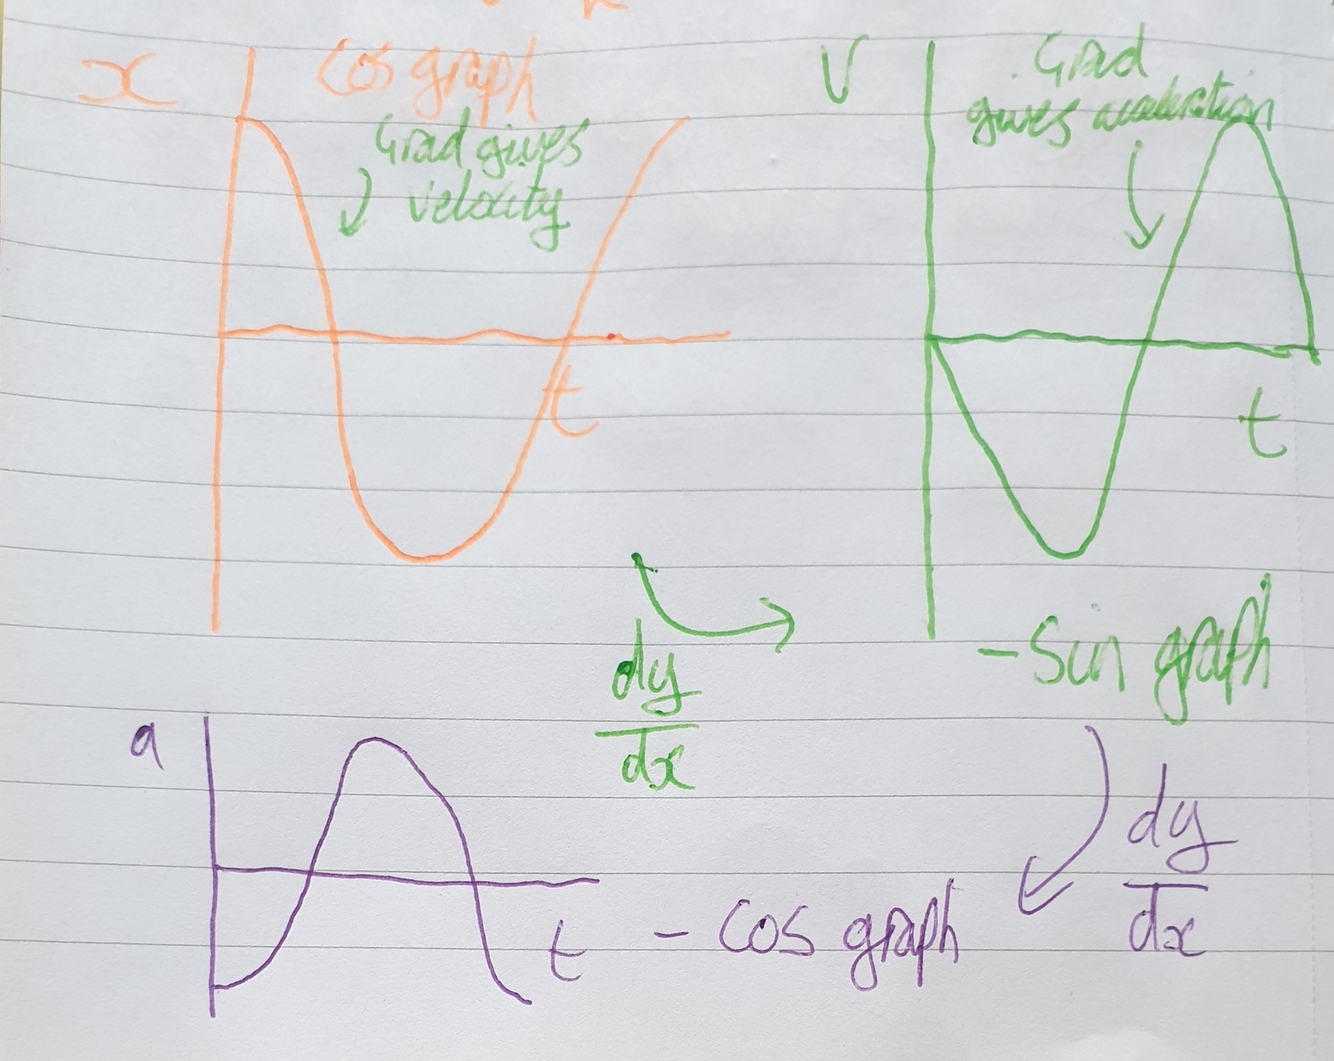 x
Cos graph
Grad gives
velocity
t
V
Grad
gives acceleration
t
dy
dx
- Sin graph
a
t
- cos graph
dy
dx